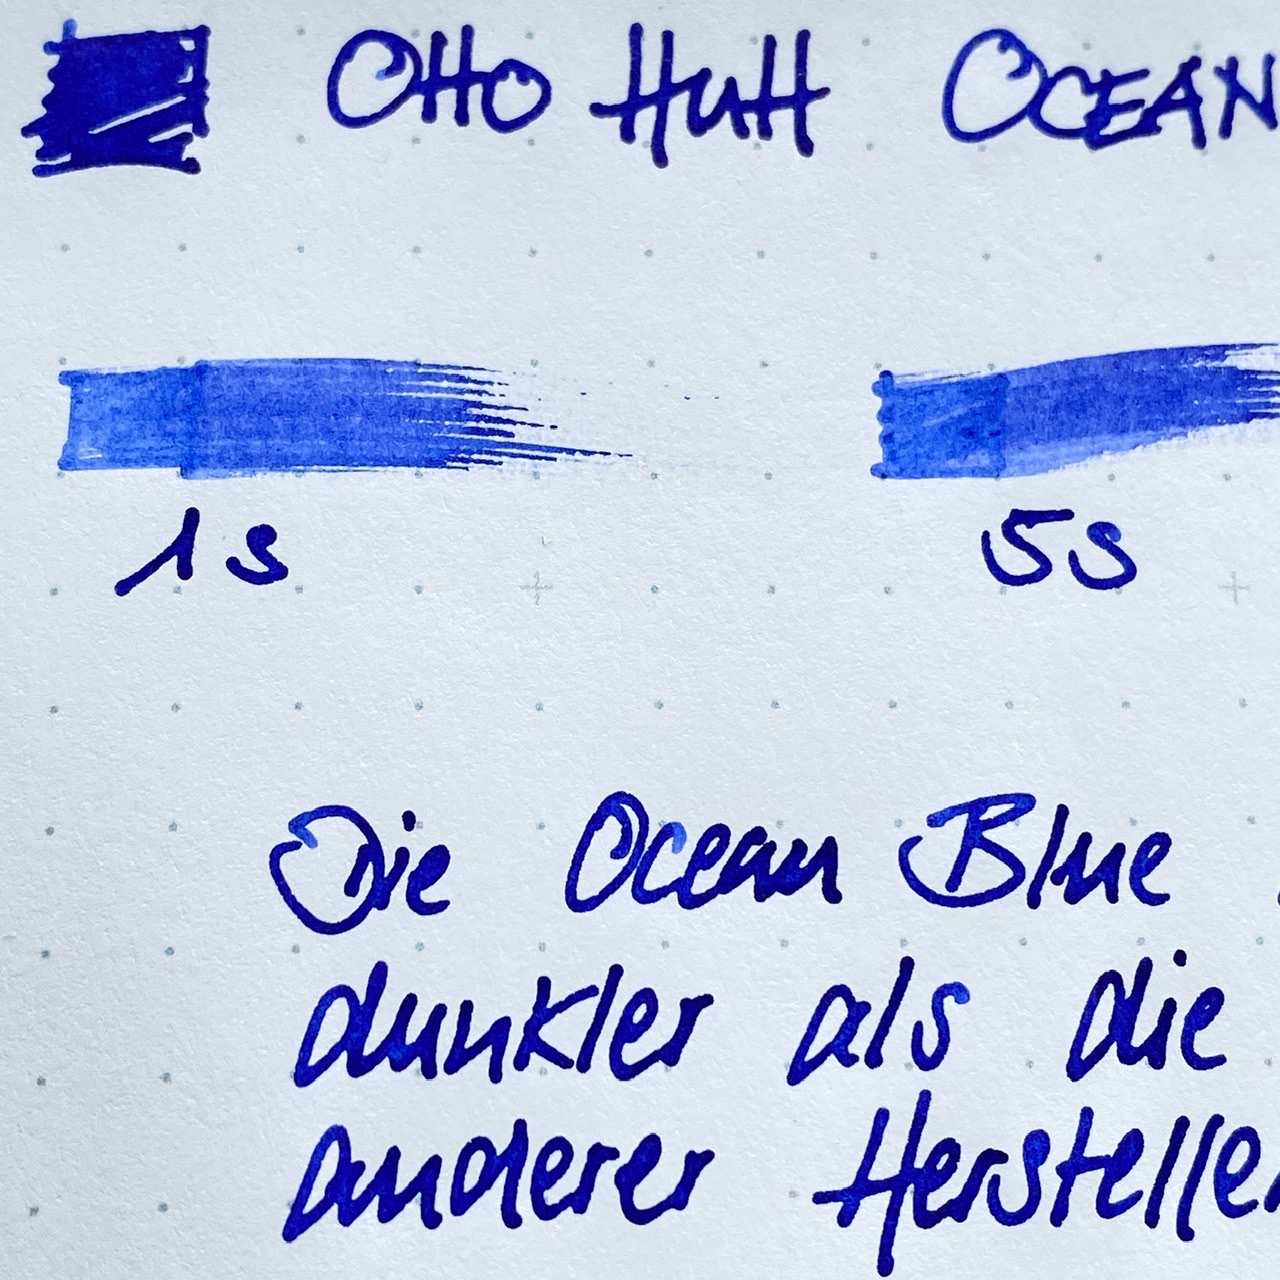 OTTO HUTT OCEAN
1s 5s
Die Ocean Blue
dunkler als die
anderer Hersteller